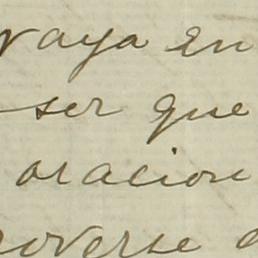 vaya en
ser que
oracion
roverse